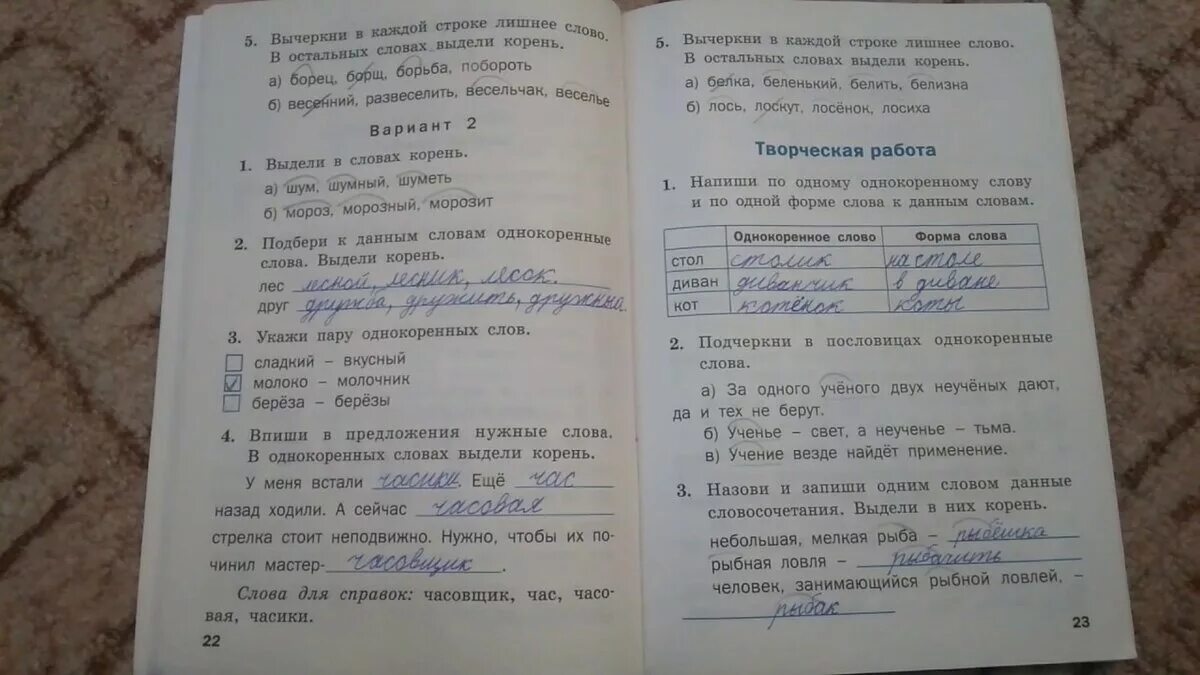 5. Вычеркни в каждой строке лишнее слово.
В остальных словах выдели корень.
а) борец, борщ, борьба, побороть
б) весенний, развеселить, весельчак, веселье
Вариант 2
1. Выдели в словах корень.
а) шум, шумный, шуметь
б) мороз, морозный, морозит
2. Подбери к данным словам однокоренные
слова. Выдели корень.
лес лесной, лесник, лесок.
друг дружба, дружить, дружный.
3. Укажи пару однокоренных слов.
сладкий – вкусный
молоко – молочник
берёза – берёзы
4. Впиши в предложения нужные слова.
В однокоренных словах выдели корень.
У меня встали часики. Ещё час
назад ходили. А сейчас часовая
стрелка стоит неподвижно. Нужно, чтобы их по-
чинил мастер- часовщик.
Слова для справок: часовщик, час, часо-
вая, часики.
22
5. Вычеркни в каждой строке лишнее слово.
В остальных словах выдели корень.
а) белка, беленький, белить, белизна
б) лось, лоскут, лосёнок, лосиха
Творческая работа
1. Напиши по одному однокоренному слову
и по одной форме слова к данным словам.
Однокоренное слово Форма слова
стол столик на столе
диван диванчик в диване
кот котёнок коты
2. Подчеркни в пословицах однокоренные
слова.
а) За одного учёного двух неучёных дают,
да и тех не берут.
б) Ученье – свет, а неученье – тьма.
в) Учение везде найдёт применение.
3. Назови и запиши одним словом данные
словосочетания. Выдели в них корень.
небольшая, мелкая рыба – рыбёшка
рыбная ловля – рыбачить
человек, занимающийся рыбной ловлей, –
рыбак
23